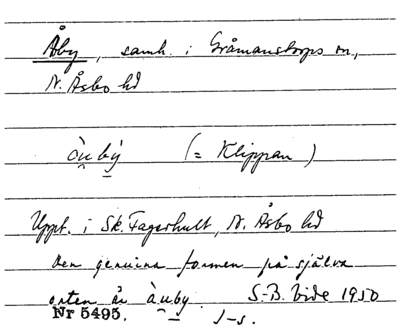 Åby, samh. i Gråmanstorps sn,
N. Åsbo hd
àu̯bý̱ (= Klippan)
Uppt. i Sk. Fagerhult, N. Åsbo hd
Den genuina formen på själva
orten är àu̯by̱. S-B. Vide 1950
Nr 5495. J-s.